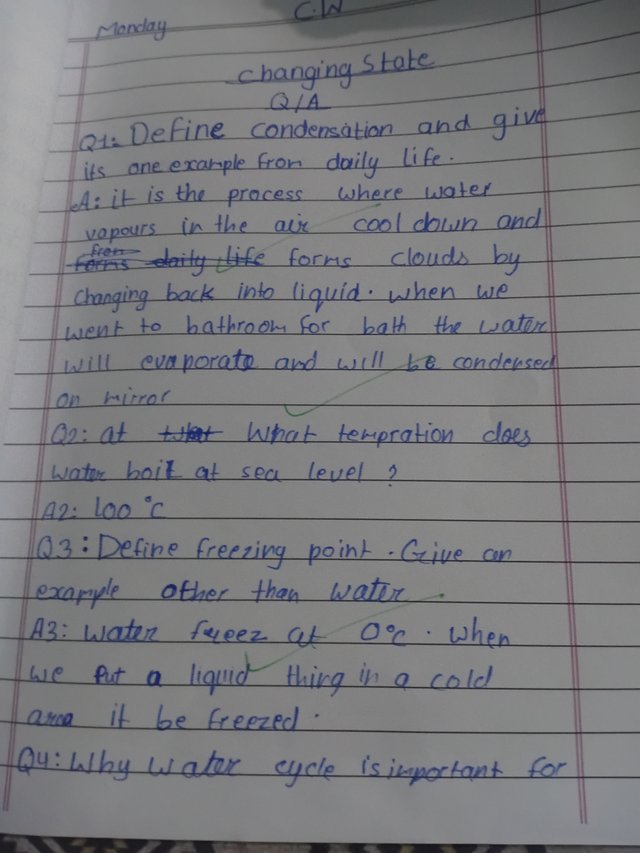 C.W
Monday
Changing State
Q/A
Q1: Define condensation and give
its one example fron daily life.
A: it is the process where water
vapours in the air cool down and
fron
forms daily life forms clouds by
changing back into liquid. when we
went to bathroom for bath the water
will evaporate and will be condensed
on mirror
Q2: at What tempration does
water boil at sea level ?
A2: 100 °C
Q3: Define freezing point. Give an
example other than water
A3: water freez at 0°C. when
we put a liquid thing in a cold
area it be freezed.
Q4: Why water cycle is important for